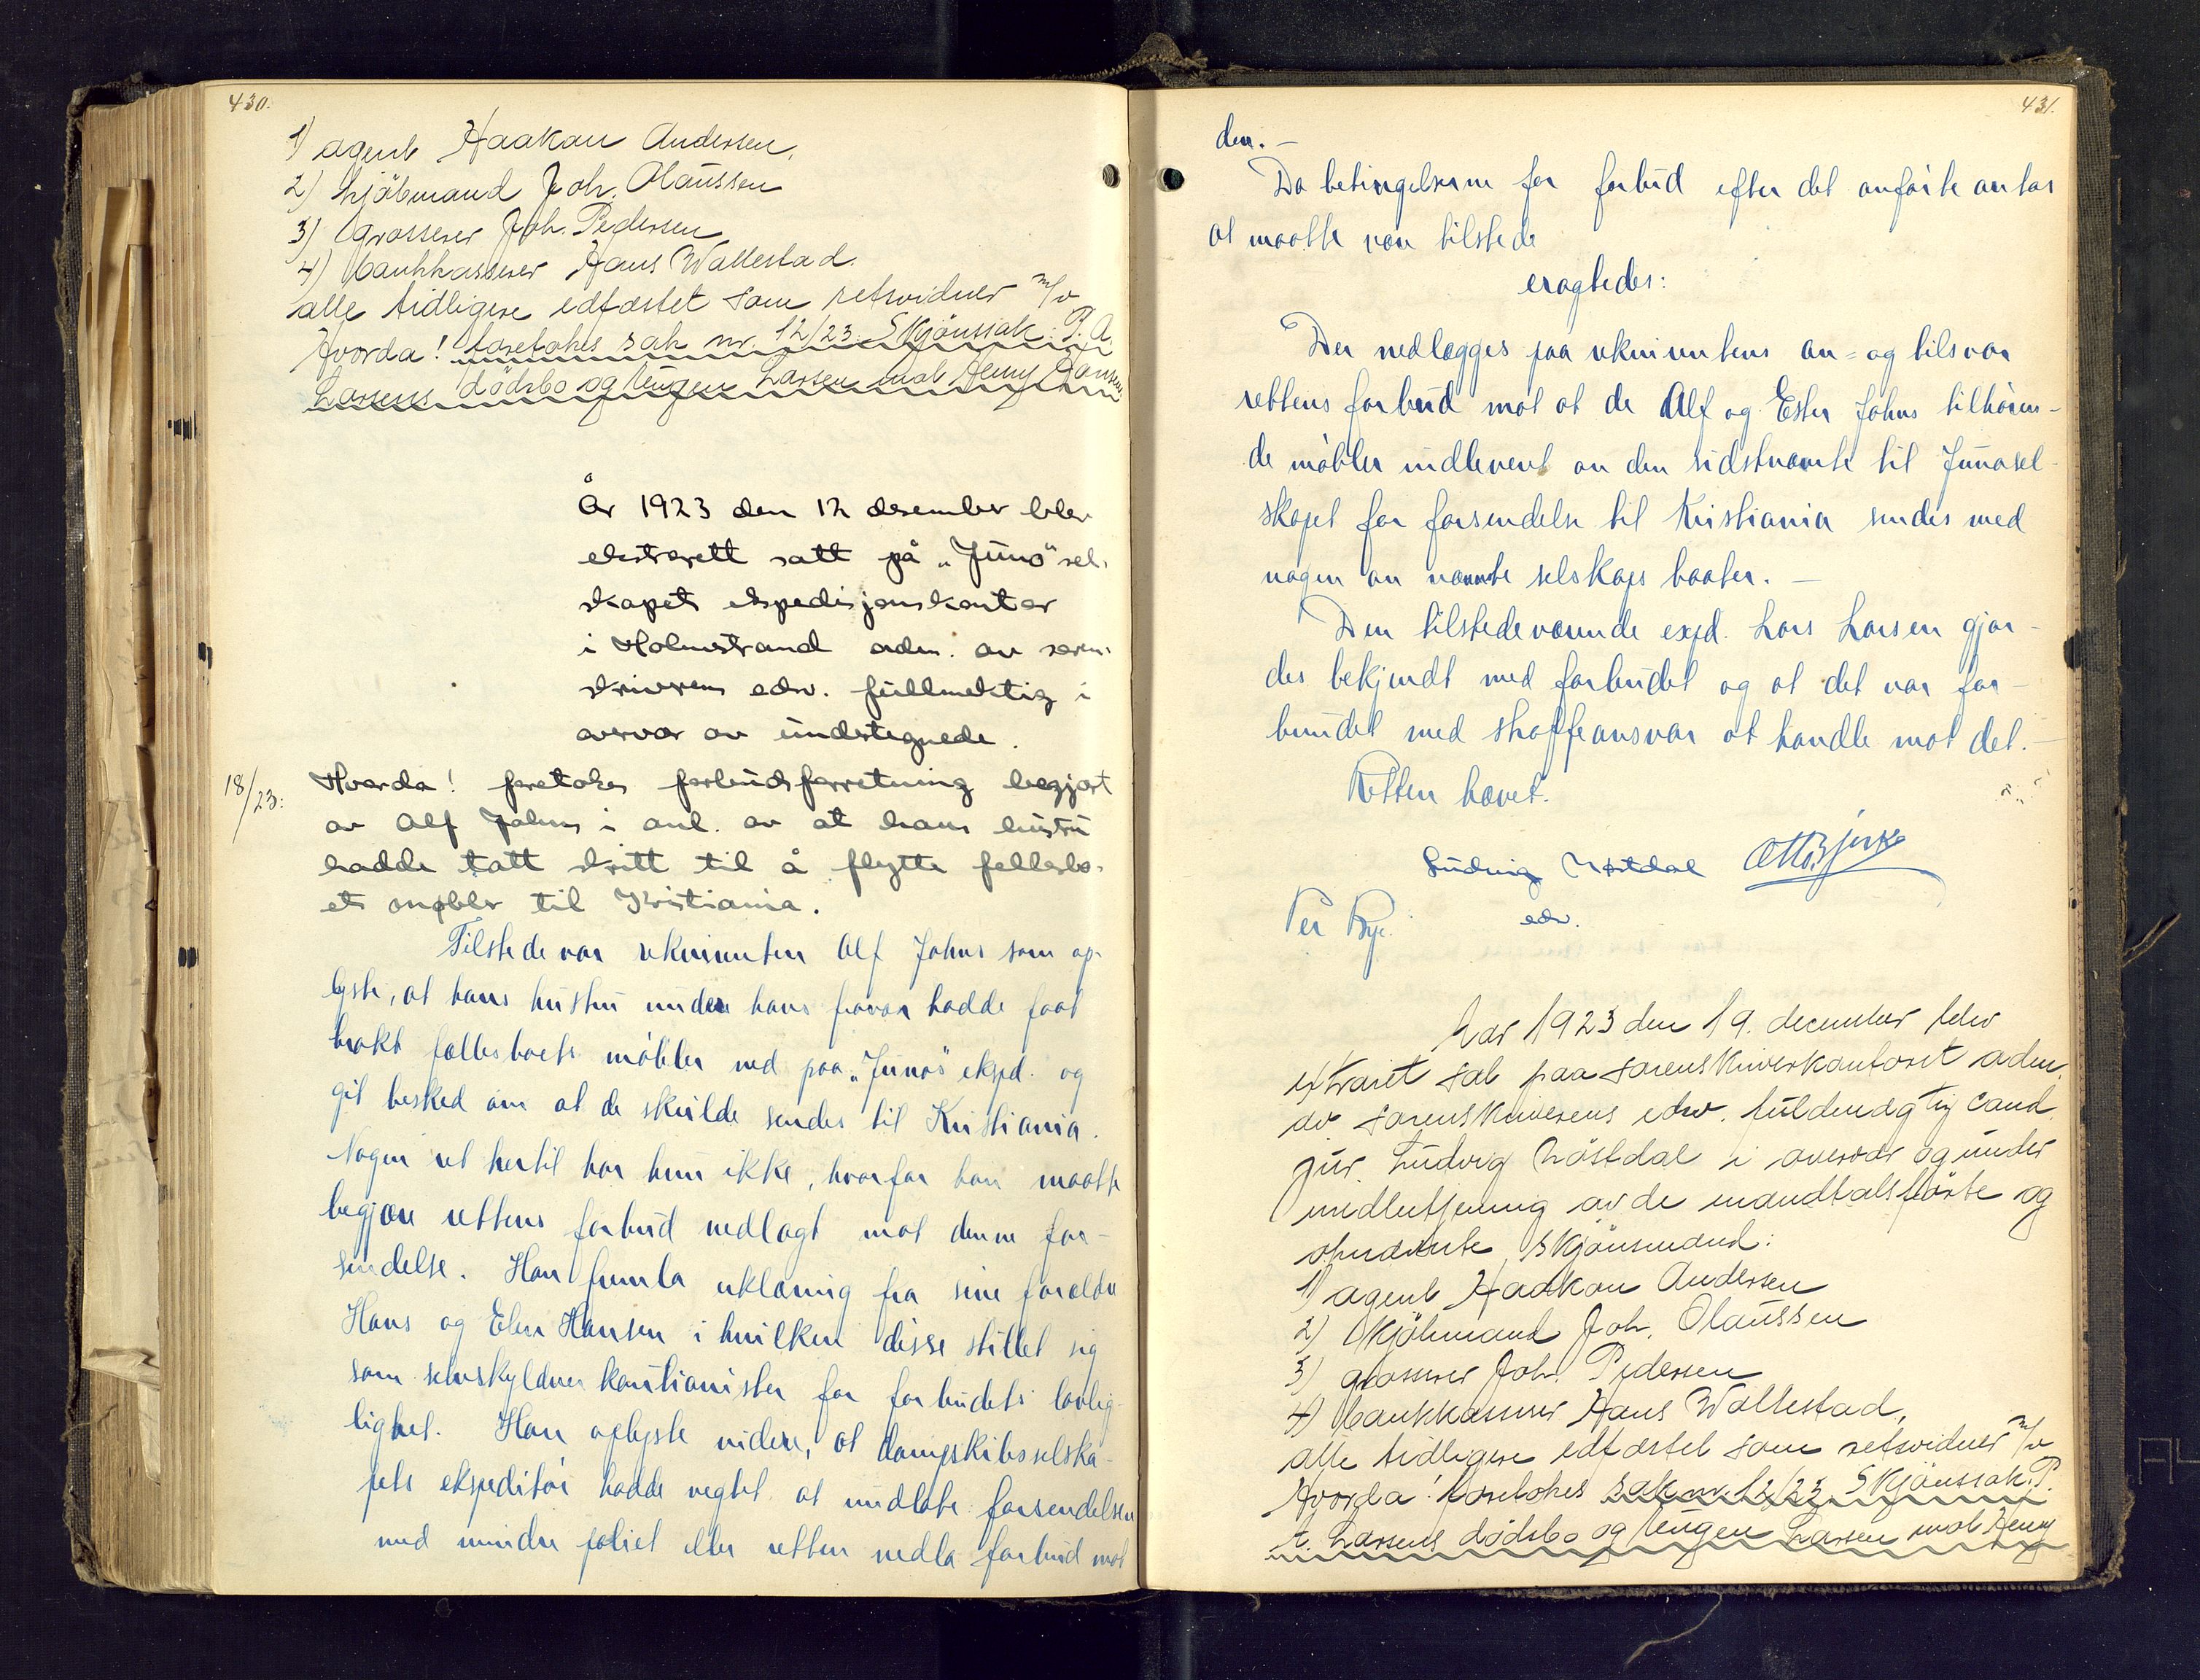 430.
1) agent Haakon Andersen,
2) kjöbmand Joh. Olaussen
3) Grosserer Joh. Pedersen
4) bankkasserer Hans Wallestad.
alle tidligere edfæstet som retsvidner m/v
Hvorda! foretokes sak nr. 12/23. Skjönssak: P. A.
Larsens dödsbo og Eugen Larsen mot Henny Hansen
År 1923 den 12 desember blev
ekstrarett satt på "Juno"sel-
skapets ekspedisjonskontor
i Holmestrand adm. av soren-
skriverens edsv. fullmektig i
overvær av undertegnede.
18/23:
Hvorda! foretokes forbudsforretning begjært
av Alf Johns i anl. av at hans hustru
hadde tatt skritt til å flytte fellesbo-
ets møbler til Kristiania.
Tilstede var rekvirenten Alf Johns som op-
lyste, at hans hustru under hans fravær hadde faat
brakt fællesboets møbler ned paa "Juno"s eksped. og
git besked om at de skulde sendes til Kristiania.
Nogen ret hertil har hun ikke, hvorfor han maatte
begjære rettens forbud nedlagt mot denne for-
sendelse. Han fremla erklæring fra sine forældre
Hans og Elen Hansen i hvilken disse stillet sig
som selvskyldnerkautionister for forbudets lovlig-
lighet. Han oplyste videre, at dampskibsselska-
pets ekspeditør hadde vegtet at undlate forsendelsen
med mindre politiet eller retten nedla forbud mot
431.
den. –
Da betingelserne for forbud efter det anførte antas
at maatte være tilstede
eragtedes:
Der nedlægges paa rekvirentens an- og tilsvar
rettens forbud mot at de Alf og Ester Johns tilhøren-
de møbler indlevert av den sidstnævnte til Junosel-
skapet for forsendelse til Kristiania sendes med
nogen av nævnte selskaps baater. –
Den tilstedeværende exp. Lars Larsen gjor-
des bekjendt med forbudet og at det var for-
bundet med straffeansvar at handle mot det. –
Retten hævet.
Ludvig Løstdal
edsv.
Per Bye.
Aar 1923 den 19. december blev
extraret sat paa sorenskriverkontoret adm.
av sorenskriverens edsv. fuldmægtig cand.
jur. Ludvig Löstdal i overvær og under
medbetjening av de mandtalsförte og
opnævnte skjönsmænd:
1) agent Haakon Andersen
2) Kjöbmand Joh. Olaussen
3) grosserer Joh. Pedersen
4) bankkasserer Hans Wallestad,
alle tidligere edfæstet som retsvidner m/v
Hvorda! foretokes sak nr. 12/23. Skjönssak: P.
A. Larsens dödsbo og Eugen Larsen mot Henny